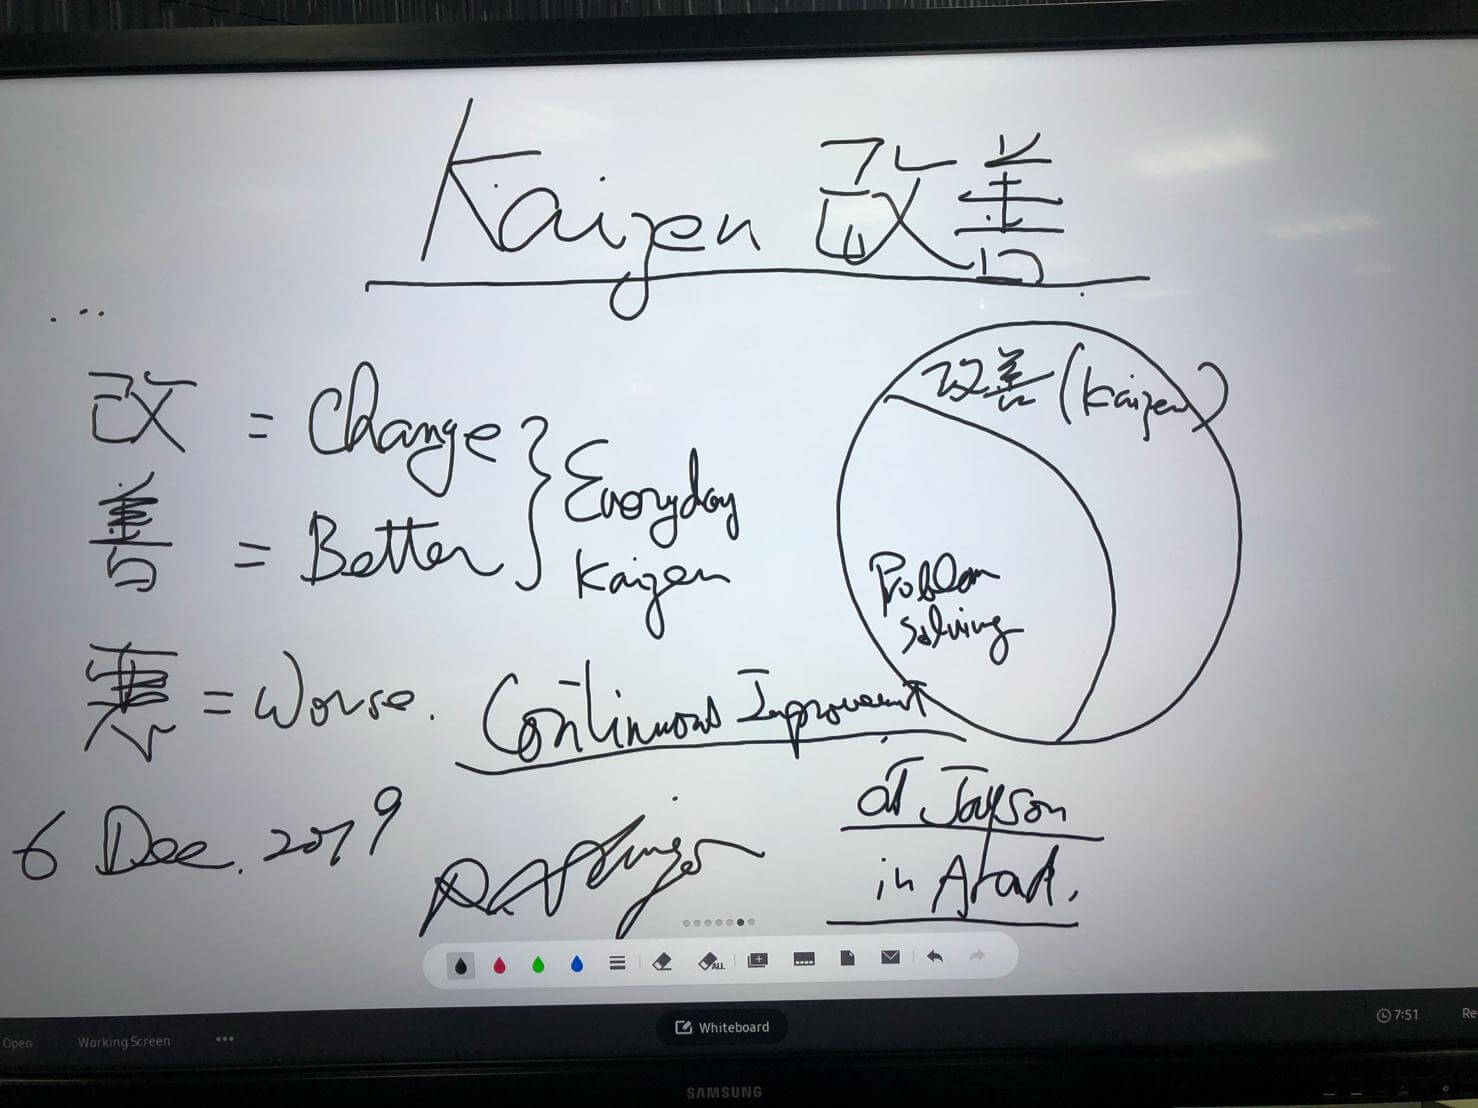 Kaizen 改善
...
改 = Change
善 = Better
Everyday
Kaizen
悪 = Worse.
改善 (Kaizen)
Problem
Solving
Continuous Improvement
6 Dec. 2019
at Jayson
in Arad.
ALL
Whiteboard
Open
Working Screen
...
7:51
Re
SAMSUNG